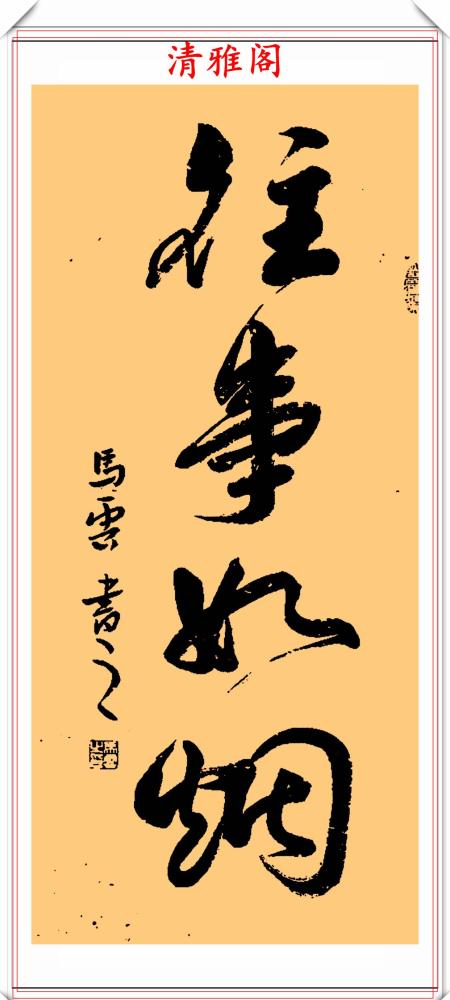 清雅阁
往事如烟
馬雲書之